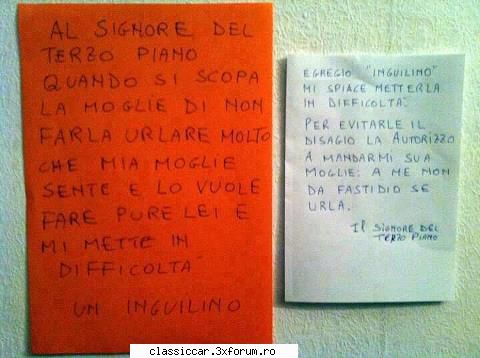 AL SIGNORE DEL
TERZO PIANO
QUANDO SI SCOPA
LA MOGLIE DI NON
FARLA URLARE MOLTO
CHE MIA MOGLIE
SENTE E LO VUOLE
FARE PURE LEI E
MI METTE IN
DIFFICOLTA'
UN INGUILINO
EGREGIO "INGUILINO"
MI SPIACE METTERLA
IN DIFFICOLTA'.
PER EVITARLE IL
DISAGIO LA AUTORIZZO
A MANDARMI SUA
MOGLIE: A ME NON
DA FASTIDIO SE
URLA.
IL SIGNORE DEL
TERZO PIANO
classiccar.3xforum.ro